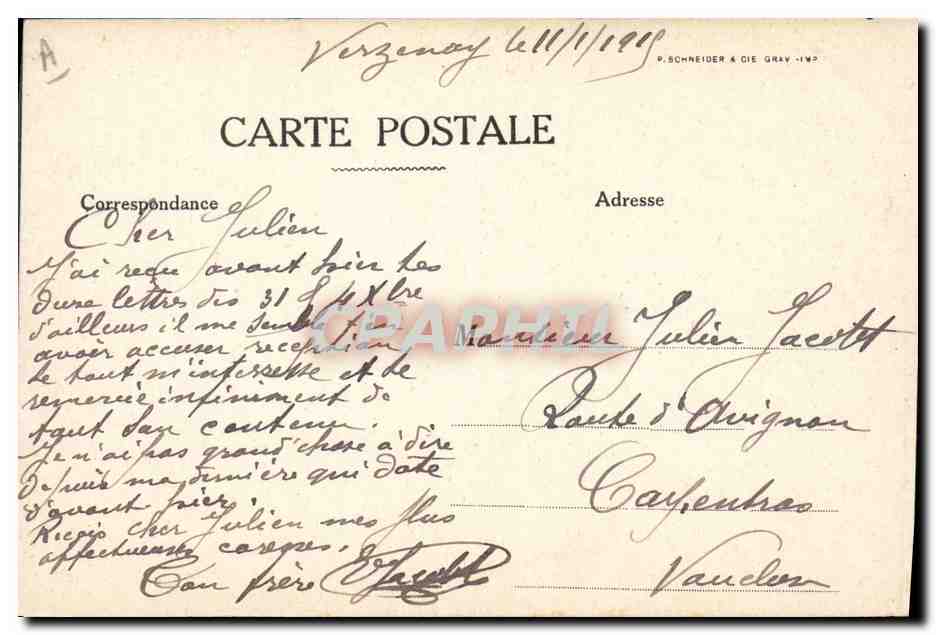 A
Verzenay le 11/1/1915
P. SCHNEIDER & CIE GRAV-IMP
CARTE POSTALE
Correspondance
Adresse
Cher Julien
J'ai reçu avant hier tes
deux lettres des 31 & 4 Xbre
d'ailleurs il me semble t'en
avoir accuser reception,
le tout m'interresse et te
remercie infiniment de
tout son contenu.
Je n'ai pas grand'chose à dire
depuis ma dernière qui date
d'avant hier.
Reçois cher Julien mes plus
affectueuses caresses.
Ton frère Jacotet
CPAPHIL
Monsieur Julien Jacotet
Route d'Avignon
Carpentras
Vaucluse